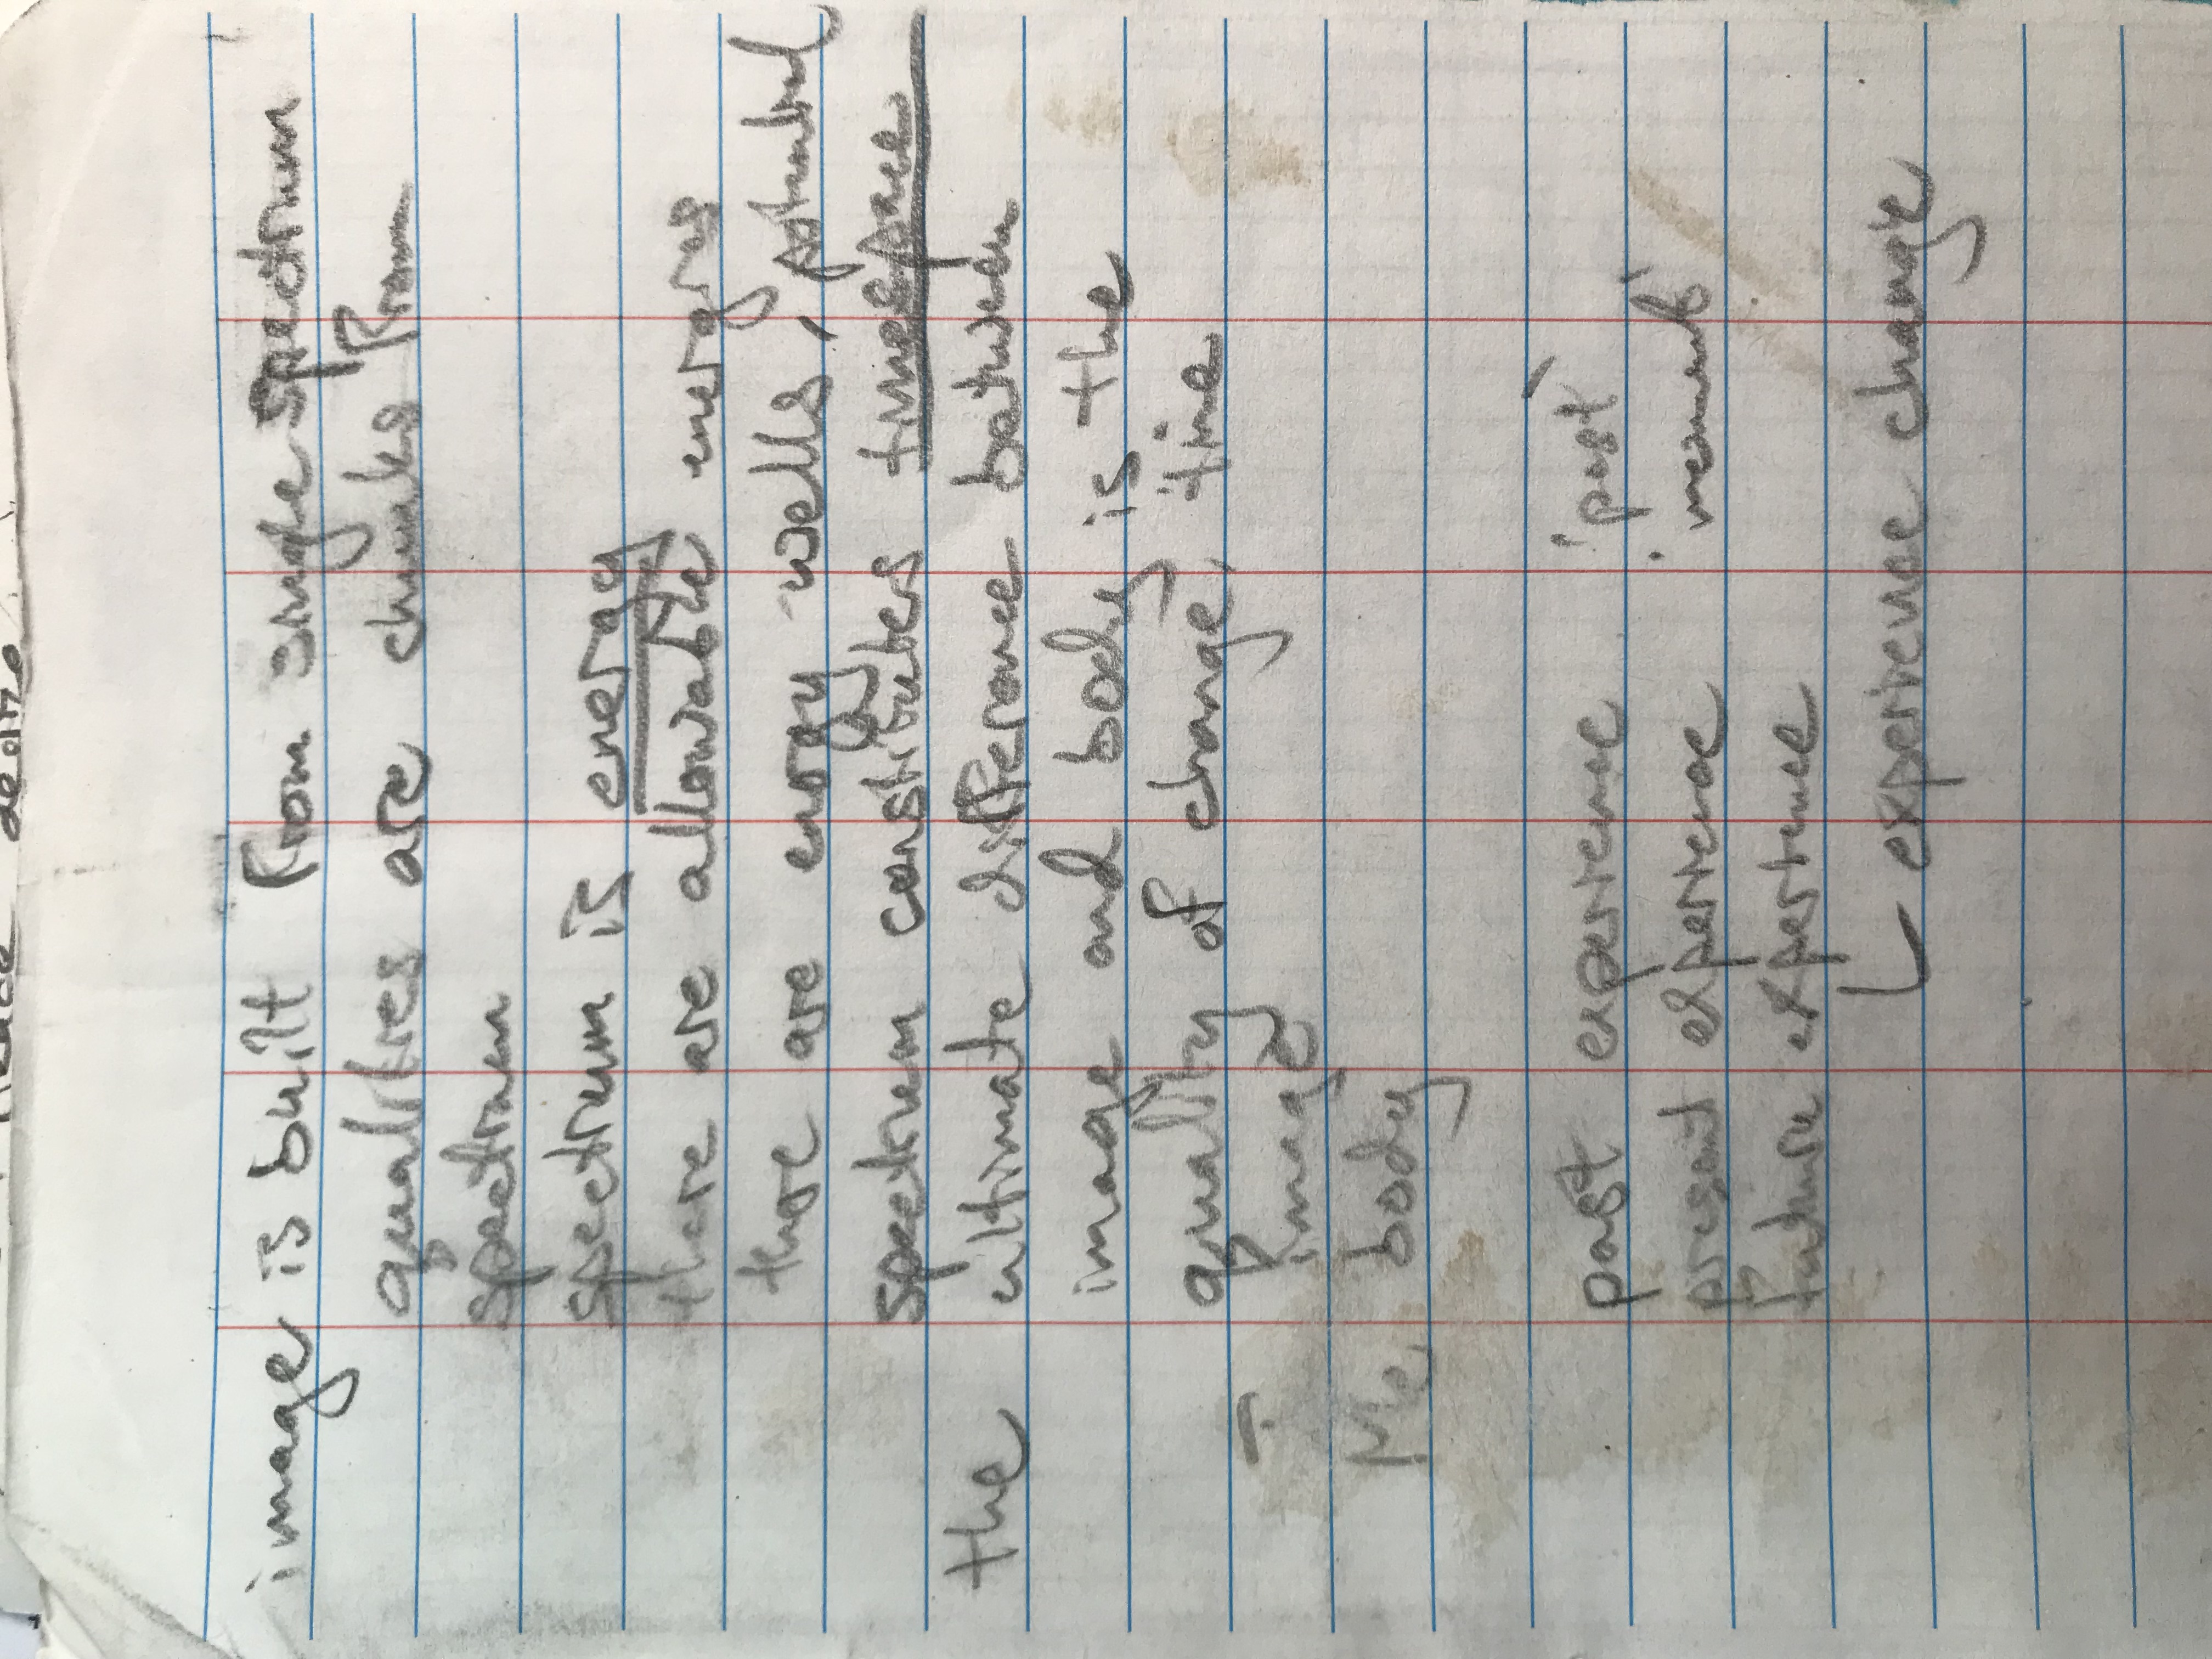 image is built from single spectrum
qualities are chunks from
spectrum
spectrum is energy
there are allowable energies
there are energy wells, potential
spectrum constitutes timespace
the ultimate difference between
image and body is the
quality of change, time
image
Me body
past experience 'past'
present experience 'moment'
future experience
experience change